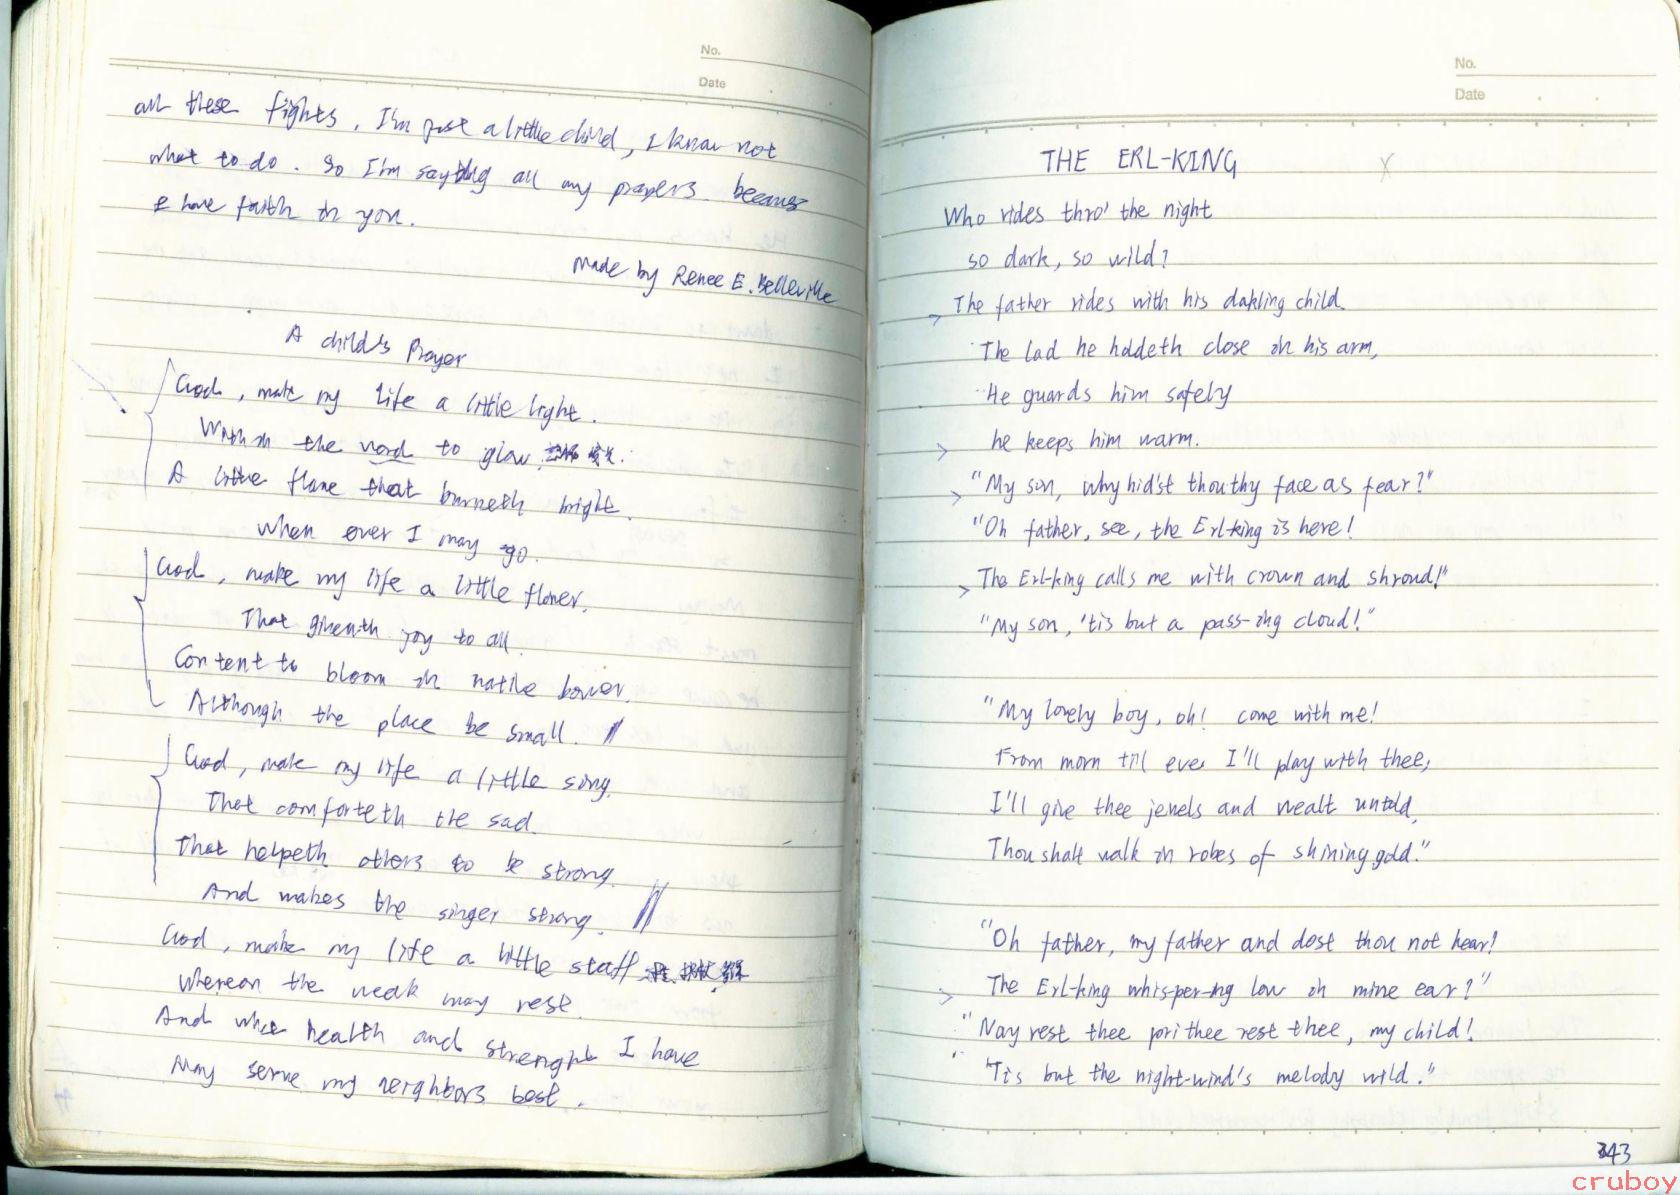 No.
Date
all these fights, I'm just a little child, I know not
what to do. So I'm saying all my prayers because
I have faith in you.
Made by Renee E. Belleville
A child's Prayer
God, make my life a little light.
Within the word to glow.
A little flame that burneth bright.
When ever I may go.
God, make my life a little flower.
That giveth joy to all.
Content to bloom in native bower.
Although the place be small.
God, make my life a little song.
That comforteth the sad.
That helpeth others to be strong.
And makes the singer strong.
God, make my life a little staff
Whereon the weak may rest.
And what health and strenght I have
May serve my neighbors best.
No.
Date
THE ERL-KING X
Who rides thro' the night
so dark, so wild?
The father rides with his dakling child.
The lad he holdeth close in his arm,
He guards him safely
he keeps him warm.
"My son, why hid'st thou thy face as fear?"
"Oh father, see, the Erl-king is here!
The Erl-king calls me with crown and shroud!"
"My son, 'tis but a pass-ing cloud!"
"My lovely boy, oh! come with me!
From morn till eve, I'll play with thee,
I'll give thee jewels and wealt untold,
Thou shalt walk in robes of shining gold."
"Oh father, my father and dost thou not hear!
The Erl-king whis-per-ing low in mine ear?"
"Nay rest thee pori thee rest thee, my child!
'Tis but the night-wind's melody wild."
343
cruboy